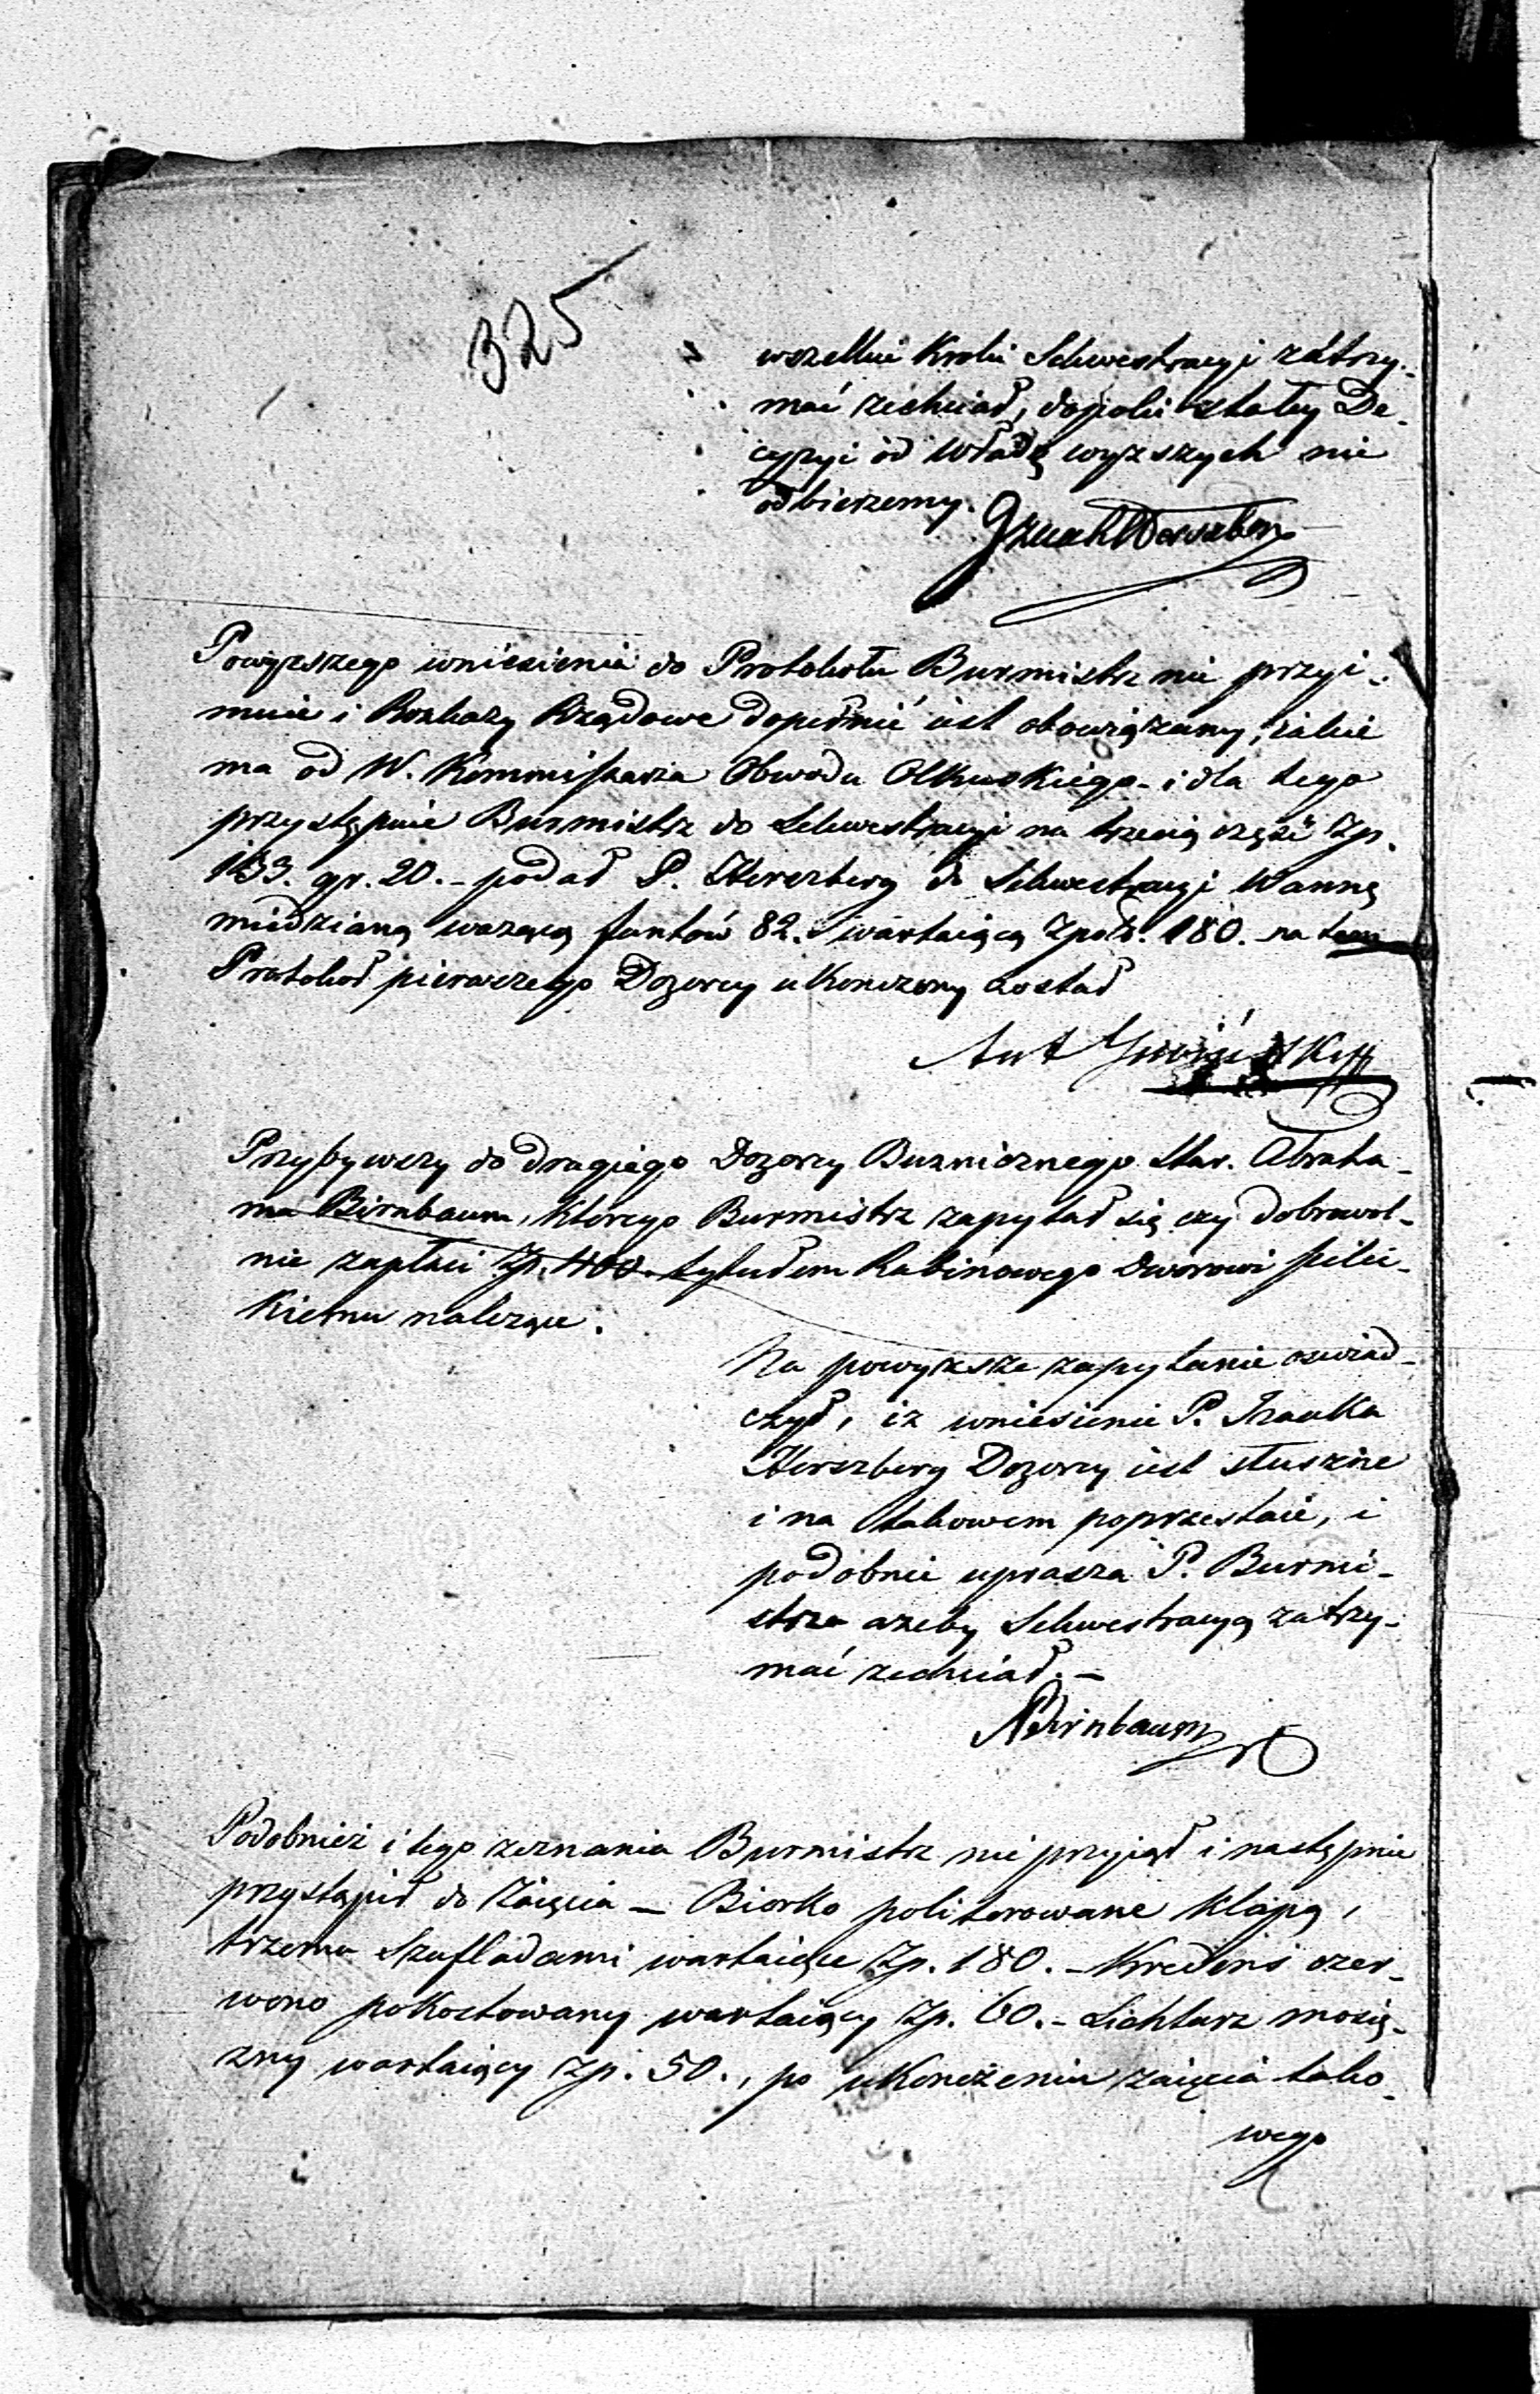 325
wszelkie Kroki Sekwestracyi zatrzy-
mać zechciał, dopoki stałey De-
cyzyi od władz wyższych nie
odbierzemy.
Powyższego wniesienia do Protokołu Burmistrz nie przyi-
muie i Rozkazy Rządowe dopełnić iest obowiązany, iakie
ma od W. Kommissarza Obwodu Olkuskiego - i dla tego
przystępuie Burmistrz do Sekwestracyi na trzecią część Zp.
133. gr. 20. - podał P. Herszberg do Sekwestracyi Wannę
miedzianą ważącą funtów 82. wartaiącą Zpol. 180. na tem
Protokoł pierwszego Dozorcy ukończony został
Przybywszy do drugiego Dozorcy Buznicznego Star. Abraha-
ma Birnbaum, ktorego Burmistrz zapytał się czy dobrowol-
nie zapłaci Zp. 400. tytułem Rabinowego Dworowi pilic-
kiemu należące.
Na powyższe zapytanie oswiad-
czył, iż wniesienie P. Izaaka
Herszberg Dozorcy iest słuszne
i na takowem poprzestaie, i
podobnie uprasza P. Burmi-
strza ażeby Sekwestracyą zatrzy-
mać zechciał. -
ABirnbaum
Podobnież i tego zeznania Burmistrz nie przyjął i następnie
przystąpił do Zaięcia - Biorko politerowane klapą,
trzema Szufladami wartaiące Zp. 180. - Kredens czer-
wono pokostowany wartaiący Zp. 60. - Lichtarz mosię-
zny wartaiący Zp. 50., po ukończeniu zaięcia tako-
wego